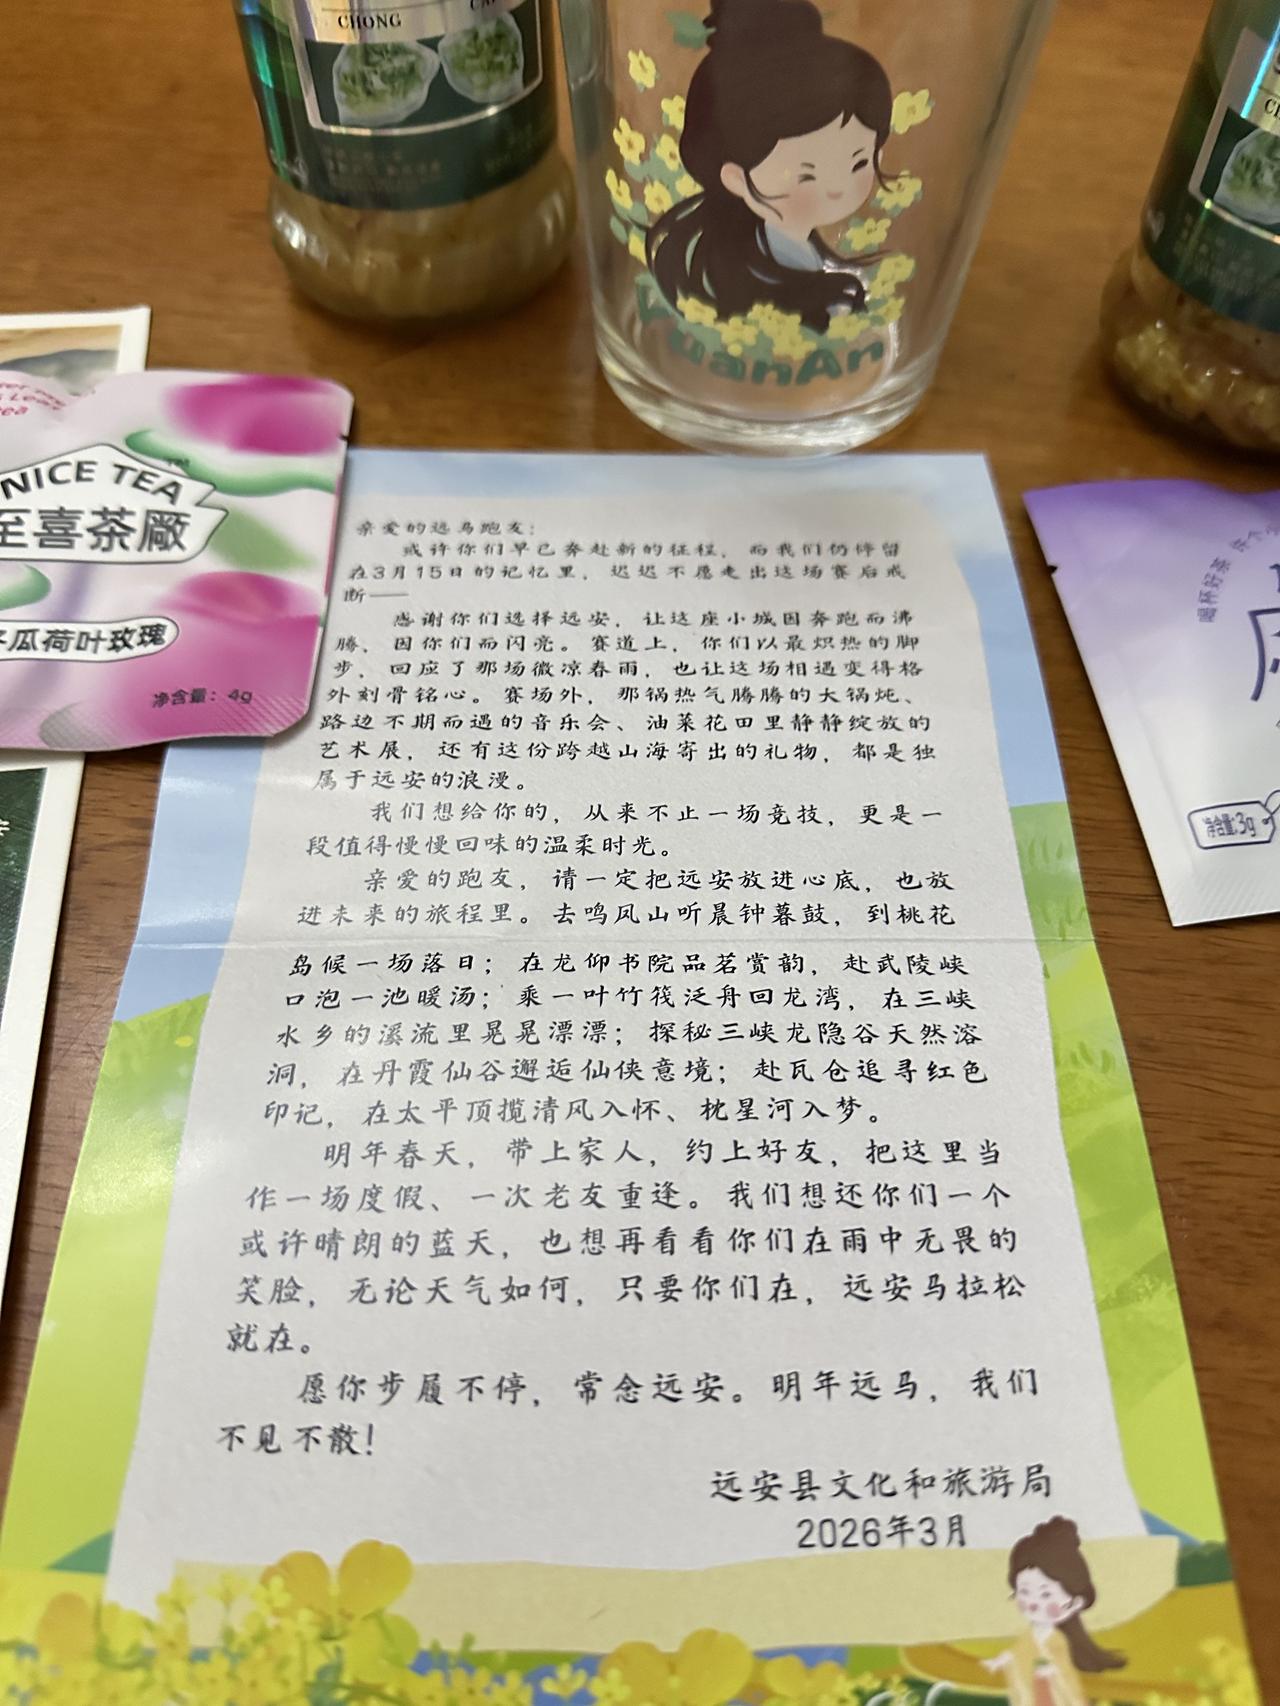 CHONG
YuanAn
NICE TEA
至喜茶厰
瓜荷叶玫瑰
净含量：4g
喝杯好茶
净含量:3g
亲爱的远马跑友：
或许你们早已奔赴新的征程，而我们仍停留
在3月15日的记忆里，迟迟不愿走出这场赛后戒
断——
感谢你们选择远安，让这座小城因奔跑而沸
腾，因你们而闪亮。赛道上，你们以最炽热的脚
步，回应了那场微凉春雨，也让这场相遇变得格
外刻骨铭心。赛场外，那锅热气腾腾的大锅炖、
路边不期而遇的音乐会、油菜花田里静静绽放的
艺术展，还有这份跨越山海寄出的礼物，都是独
属于远安的浪漫。
我们想给你的，从来不止一场竞技，更是一
段值得慢慢回味的温柔时光。
亲爱的跑友，请一定把远安放进心底，也放
进未来的旅程里。去鸣凤山听晨钟暮鼓，到桃花
岛候一场落日；在龙仰书院品茗赏韵，赴武陵峡
口泡一池暖汤；乘一叶竹筏泛舟回龙湾，在三峡
水乡的溪流里晃晃漂漂；探秘三峡龙隐谷天然溶
洞，在丹霞仙谷邂逅仙侠意境；赴瓦仓追寻红色
印记，在太平顶揽清风入怀、枕星河入梦。
明年春天，带上家人，约上好友，把这里当
作一场度假、一次老友重逢。我们想还你们一个
或许晴朗的蓝天，也想再看看你们在雨中无畏的
笑脸，无论天气如何，只要你们在，远安马拉松
就在。
愿你步履不停，常念远安。明年远马，我们
不见不散！
远安县文化和旅游局
2026年3月